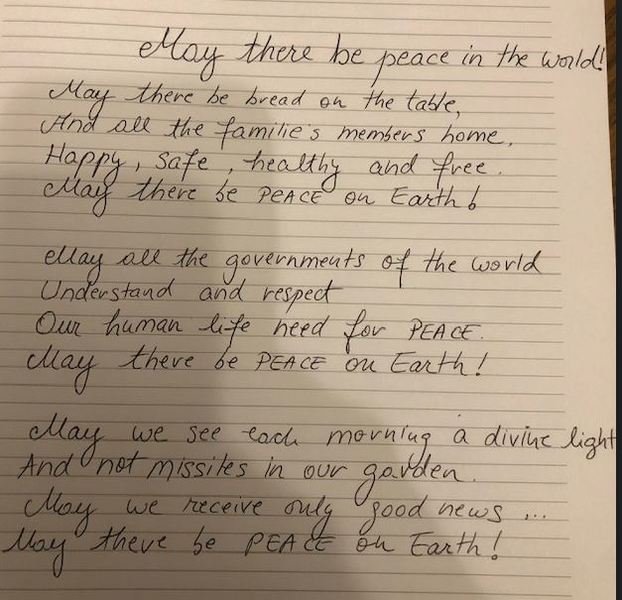 May there be peace in the world!
May there be bread on the table,
And all the familie's members home,
Happy, safe, healthy and free.
May there be PEACE on Earth!
May all the governments of the world
Understand and respect
Our human life need for PEACE.
May there be PEACE on Earth!
May we see each morning a divine light
And not missiles in our garden.
May we receive only good news ...
May there be PEACE on Earth!